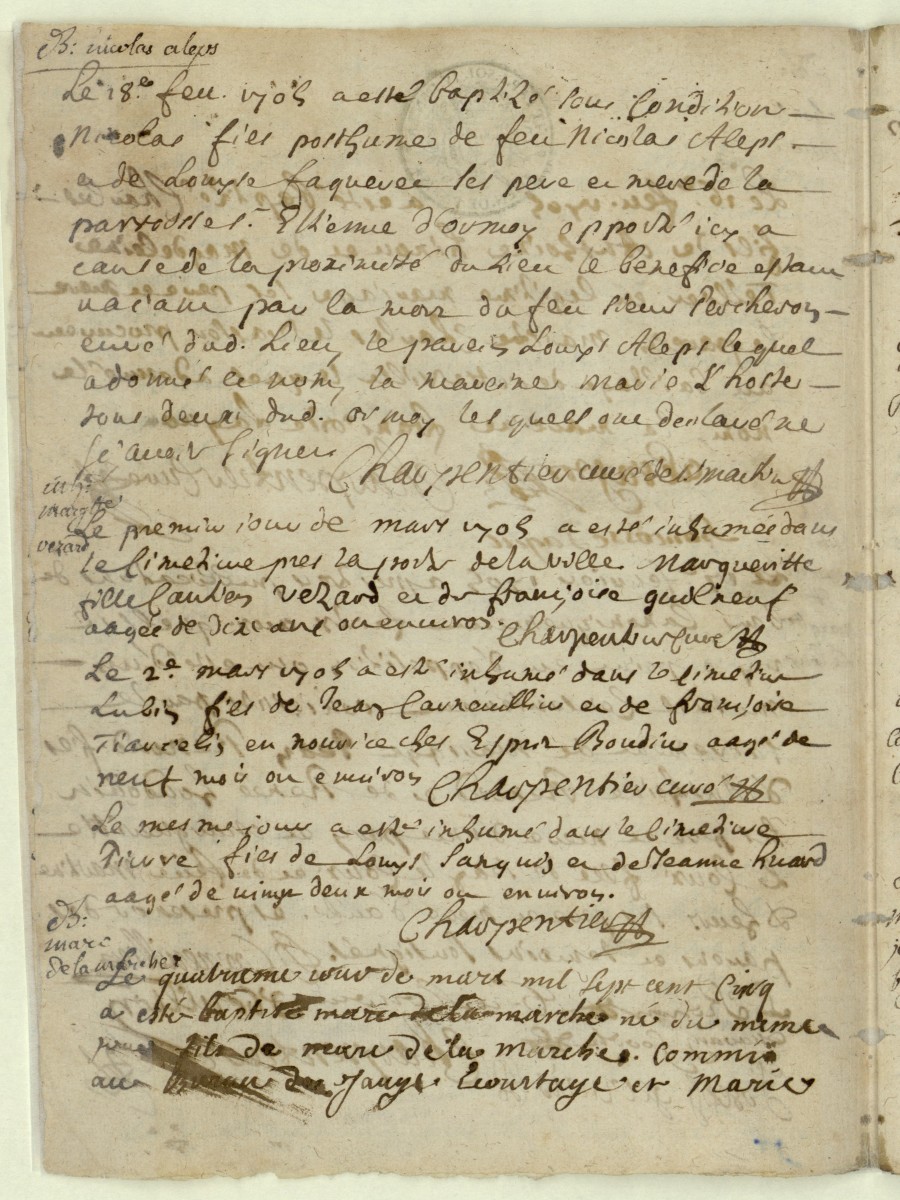 B: nicolas aleps
Le 18.e feu. 1705 a esté baptizé sous Condition
Nicolas fils posthume de feu Nicolas Aleps
et de Louyse faqueren ses pere et mere de la
parroisse St. Estienne d'ormoy apporté icy a
cause de la proximité du lieu le benefice estant
vacant par la mort du feu sieur Percheron
curé dud. Lieu, le parein Louys Aleps lequel
a donné ce nom, la mareine Marie L'hoste
tous deux dud. ormoy lesquels ont declaré ne
sçavoir signer
Charpentier curé de St martin
inh:
margte
vezard
Le premier jour de mars 1705 a esté inhumée dans
le Cimetiere pres la porte de la ville Margueritte
fille Vezard et de françoise
aagée de dix ans ou environ. Charpentier Curé
Le 2e mars 1705 a esté inhumé dans le Cimetiere
Lubin fils de Jean et de françoise
en nourice ches Boudin aagé de
neuf mois ou environ Charpentier curé
Le mesme jour a esté inhumé dans le Cimetiere
Pierre fils de Louys Sanguin et de Jeanne huard
aagé de vingt deux mois ou environ.
Charpentier
B:
marc
de la marche
Le quatrieme jour de mars mil sept cent Cinq
a esté baptisé marc de la marche né du meme
jour fils de marc de la marche. Commis
au Bureau des Jauge Courtage et Marie